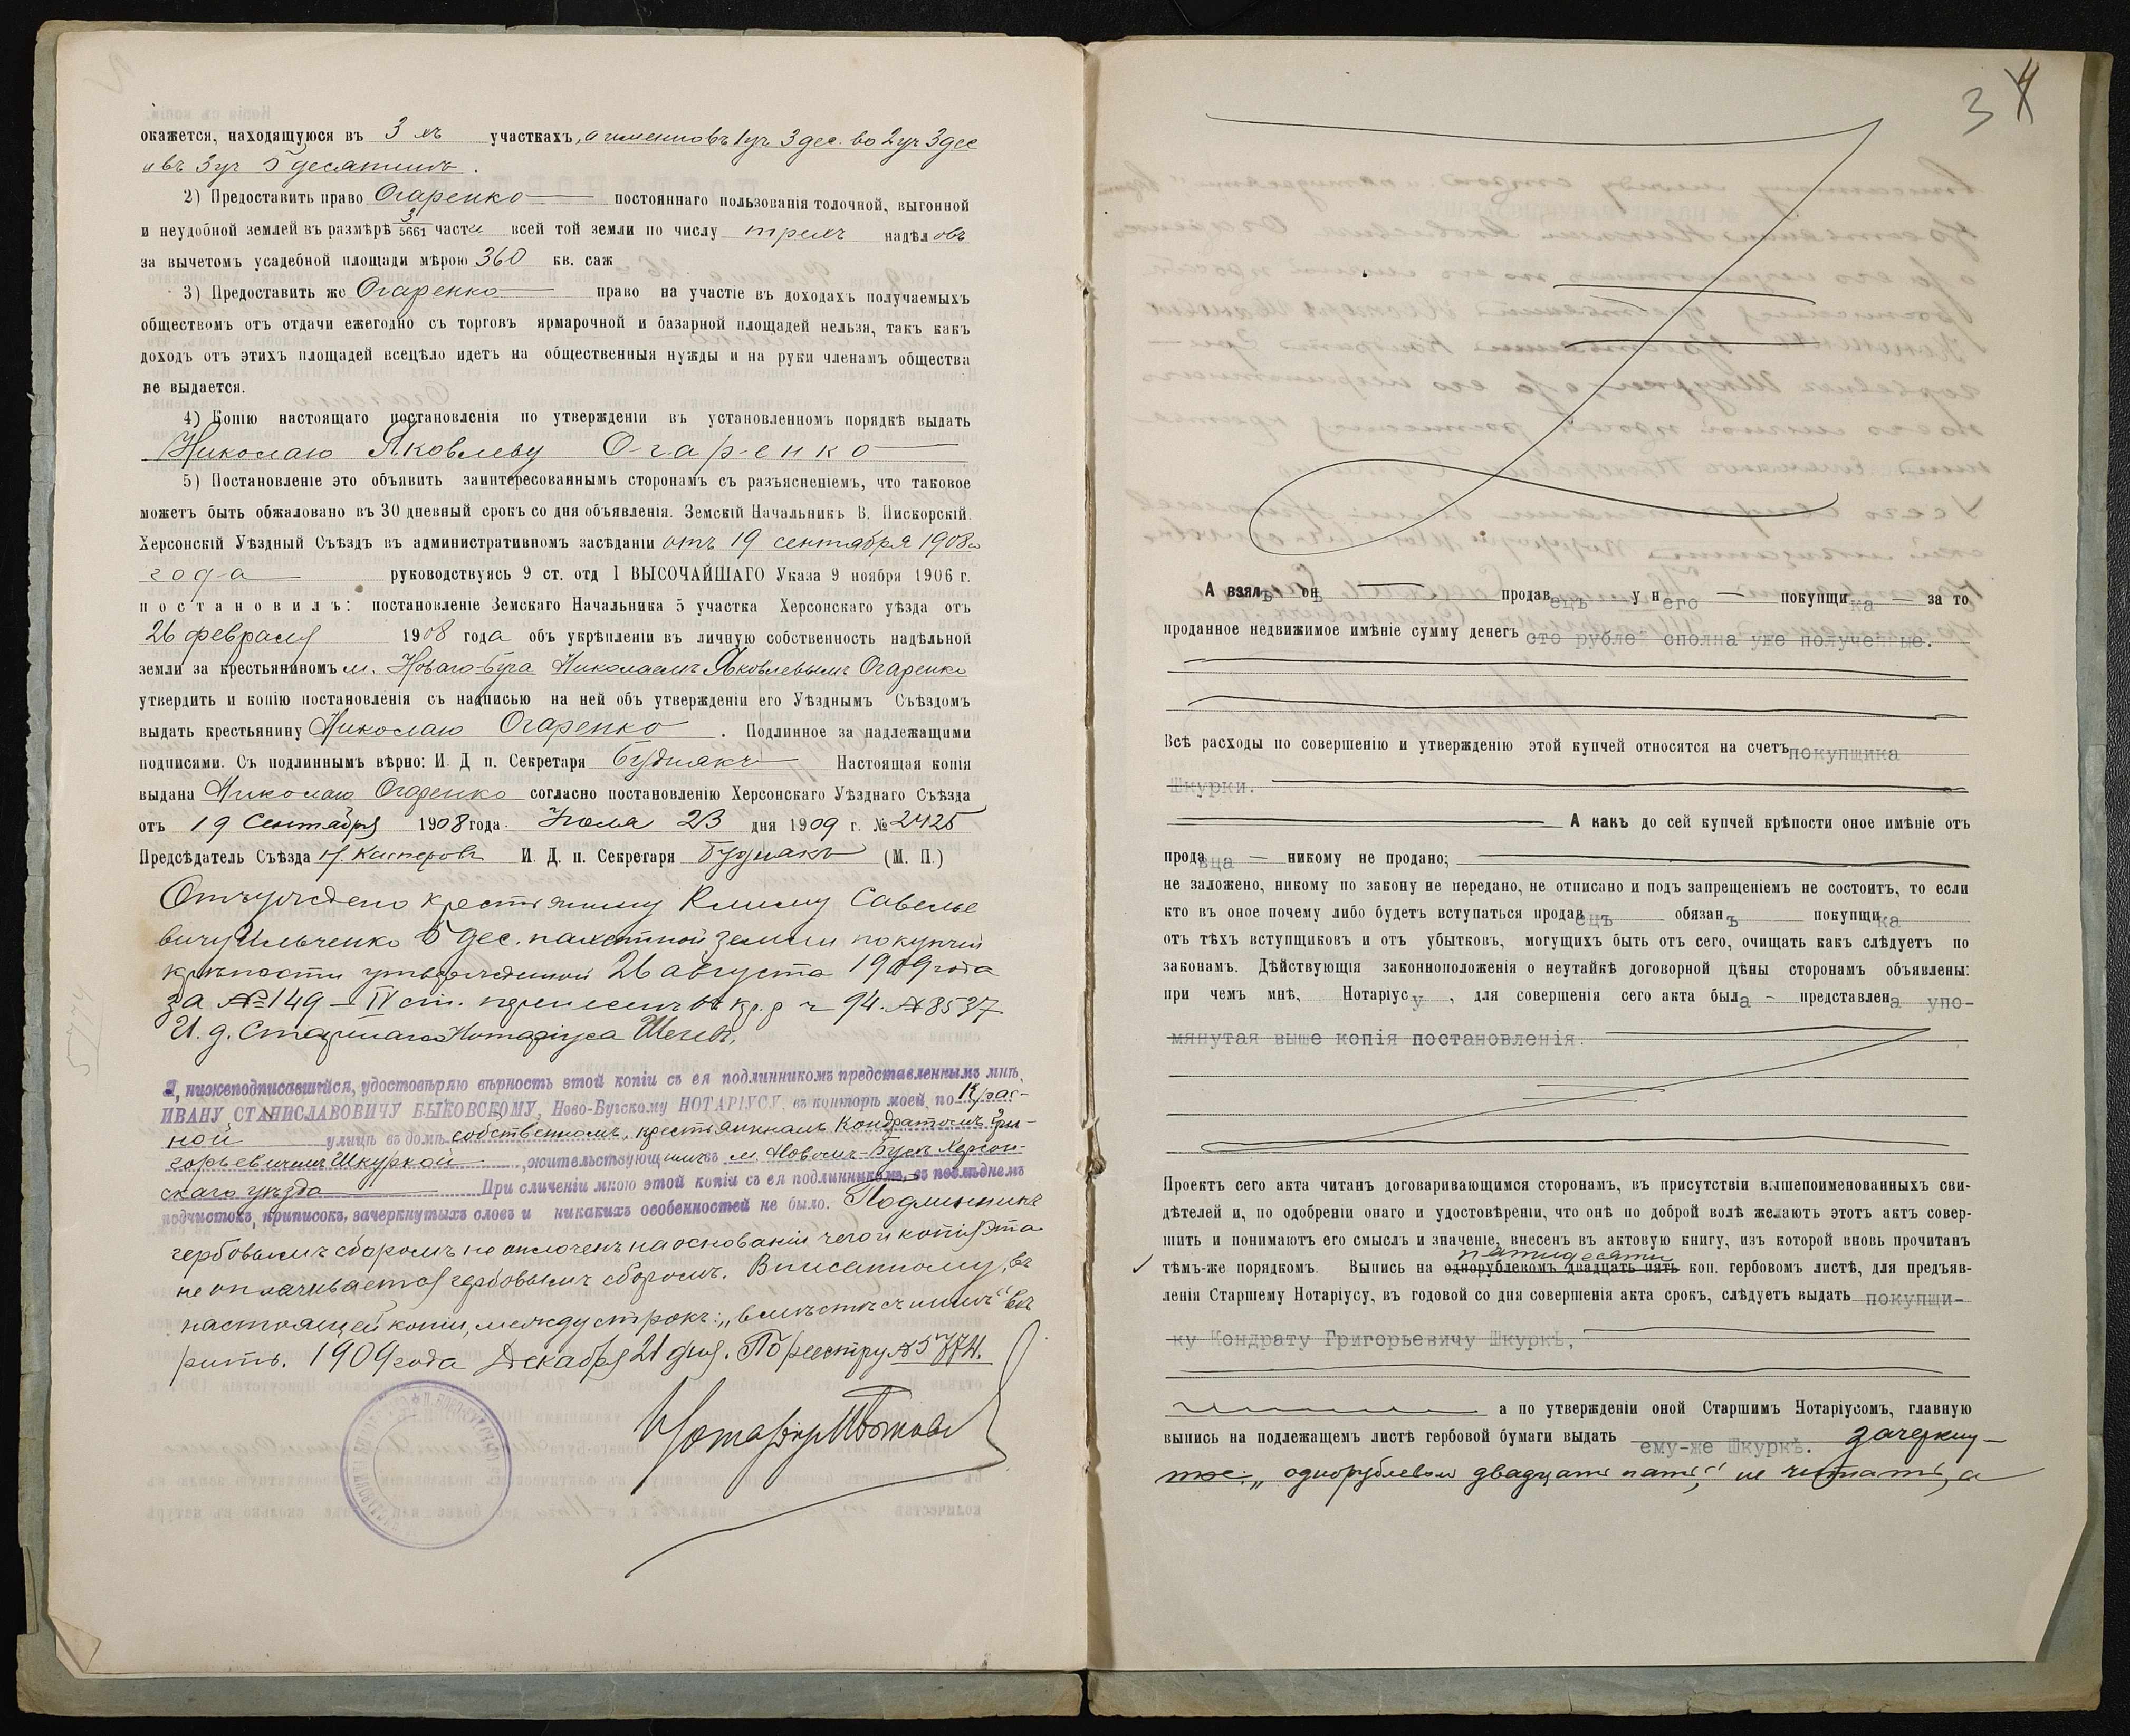 окажется, находящуюся въ 3 хъ участкахъ, а именно въ 1 уч 3 дес. во 2 уч 3 дес
и въ 3 уч 5 десятинъ.
2) Предоставить право Огаренко постояннаго пользованія толочной, выгонной
и неудобной землей въ размѣрѣ 3/5661 части всей той земли по числу трехъ надѣловъ
за вычетомъ усадебной площади мѣрою 360 кв. саж
3) Предоставить же Огаренко право на участіе въ доходахъ получаемыхъ
обществомъ отъ отдачи ежегодно съ торговъ ярмарочной и базарной площадей нельзя, такъ какъ
доходъ отъ этихъ площадей всецѣло идетъ на общественныя нужды и на руки членамъ общества
не выдается.
4) Копію настоящаго постановленія по утвержденіи въ установленномъ порядкѣ выдать
Николаю Яковлеву Огаренко
5) Постановленіе это объявить заинтересованнымъ сторонамъ съ разъясненіемъ, что таковое
можетъ быть обжаловано въ 30 дневный срокъ со дня объявленія. Земскій Начальникъ В. Пискорскій.
Херсонскій Уѣздный Съѣздъ въ административномъ засѣданіи отъ 19 сентября 1908
года руководствуясь 9 ст. отд I ВЫСОЧАЙШАГО Указа 9 ноября 1906 г.
постановилъ: постановленіе Земскаго Начальника 5 участка Херсонскаго уѣзда отъ
26 февраля 1908 года объ укрѣпленіи въ личную собственность надѣльной
земли за крестьяниномъ м. Новаго-Буга Николаемъ Яковлевымъ Огаренко
утвердить и копію постановленія съ надписью на ней объ утвержденіи его Уѣзднымъ Съѣздомъ
выдать крестьянину Николаю Огаренко. Подлинное за надлежащими
подписями. Съ подлиннымъ вѣрно: И. Д п. Секретаря Будмакъ Настоящая копія
выдана Николаю Огаренко согласно постановленію Херсонскаго Уѣзднаго Съѣзда
отъ 19 Сентября 1908 года. Іюля 23 дня 1909 г. № 2425
Предсѣдатель Съѣзда Н. Касперовъ И. Д. п. Секретаря Будмакъ (М. П.)
Отчуждено крестьянину Климу Савелье
вичу Ильченко 5 дес. пахатной земли по купчей
крѣпости утвержденной 26 августа 1909 года
за № 149 – IV ст. кр. р ч 94. № 8537
И. д. Старшаго Нотаріуса
Я, нижеподписавшійся, удостовѣряю вѣрность этой копіи съ ея подлинникомъ представленнымъ мнѣ,
ИВАНУ СТАНИСЛАВОВИЧУ БЫКОВСКОМУ, Ново-Бугскому НОТАРІУСУ, въ конторѣ моей, по Крас-
ной улицѣ въ домѣ собственномъ, крестьяниномъ Кондратомъ Гри-
горьевичемъ Шкуркой, жительствующимъ въ м. Новомъ-Бугѣ Херсон-
скаго уѣзда При сличеніи мною этой копіи съ ея подлинникомъ, въ послѣднемъ
подчистокъ, приписокъ, зачеркнутыхъ словъ и никакихъ особенностей не было. Подлинникъ
гербовымъ сборомъ не оплоченъ на основаніи чего и копія эта
не оплачивается гербовымъ сборомъ. Вписанному, въ
настоящей копіи, между строкъ: „вмѣстѣ съ нимъ“ вѣ
рить. 1909 года Декабря 21 дня. По реестру № 5774.
Нотаріусъ Быковскій
5774
3 4
А взялъ онъ продавецъ у него покупщика за то
проданное недвижимое имѣніе сумму денегъ сто рублей сполна уже полученные.
Всѣ расходы по совершенію и утвержденію этой купчей относятся на счетъ покупщика
Шкурки.
А какъ до сей купчей крѣпости оное имѣніе отъ
продавца никому не продано;
не заложено, никому по закону не передано, не отписано и подъ запрещеніемъ не состоитъ, то если
кто въ оное почему либо будетъ вступаться продавецъ обязанъ покупщика
отъ тѣхъ вступщиковъ и отъ убытковъ, могущихъ быть отъ сего, очищать какъ слѣдуетъ по
законамъ. Дѣйствующія законноположенія о неутайкѣ договорной цѣны сторонамъ объявлены:
при чемъ мнѣ, Нотаріусу, для совершенія сего акта была представлена упо-
мянутая выше копія постановленія.
Проектъ сего акта читанъ договаривающимся сторонамъ, въ присутствіи вышепоименованныхъ сви-
дѣтелей и, по одобреніи онаго и удостовѣреніи, что онѣ по доброй волѣ желаютъ этотъ актъ совер-
шить и понимаютъ его смыслъ и значеніе, внесенъ въ актовую книгу, изъ которой вновь прочитанъ
пятидесяти
тѣмъ-же порядкомъ. Выпись на однорублевомъ двадцать пять коп. гербовомъ листѣ, для предъяв-
ленія Старшему Нотаріусу, въ годовой со дня совершенія акта срокъ, слѣдуетъ выдать покупщи-
ку Кондрату Григорьевичу Шкуркѣ,
а по утвержденіи оной Старшимъ Нотаріусомъ, главную
выпись на подлежащемъ листѣ гербовой бумаги выдать ему-же Шкуркѣ. Зачеркну-
тое: „однорублевом двадцать пять“ не читать, а